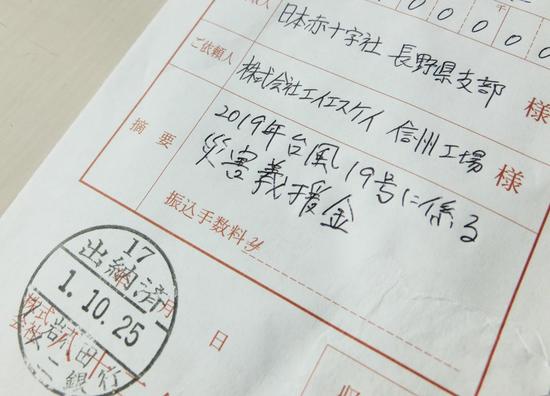 人
日本赤十字社 長野県支部 様
ご依頼人
株式会社エイエスケイ 信州工場 様
摘要
2019年台風19号に係る
災害義援金
振込手数料
17
出納済
1.10.25
月
日
株式会社
八十二銀